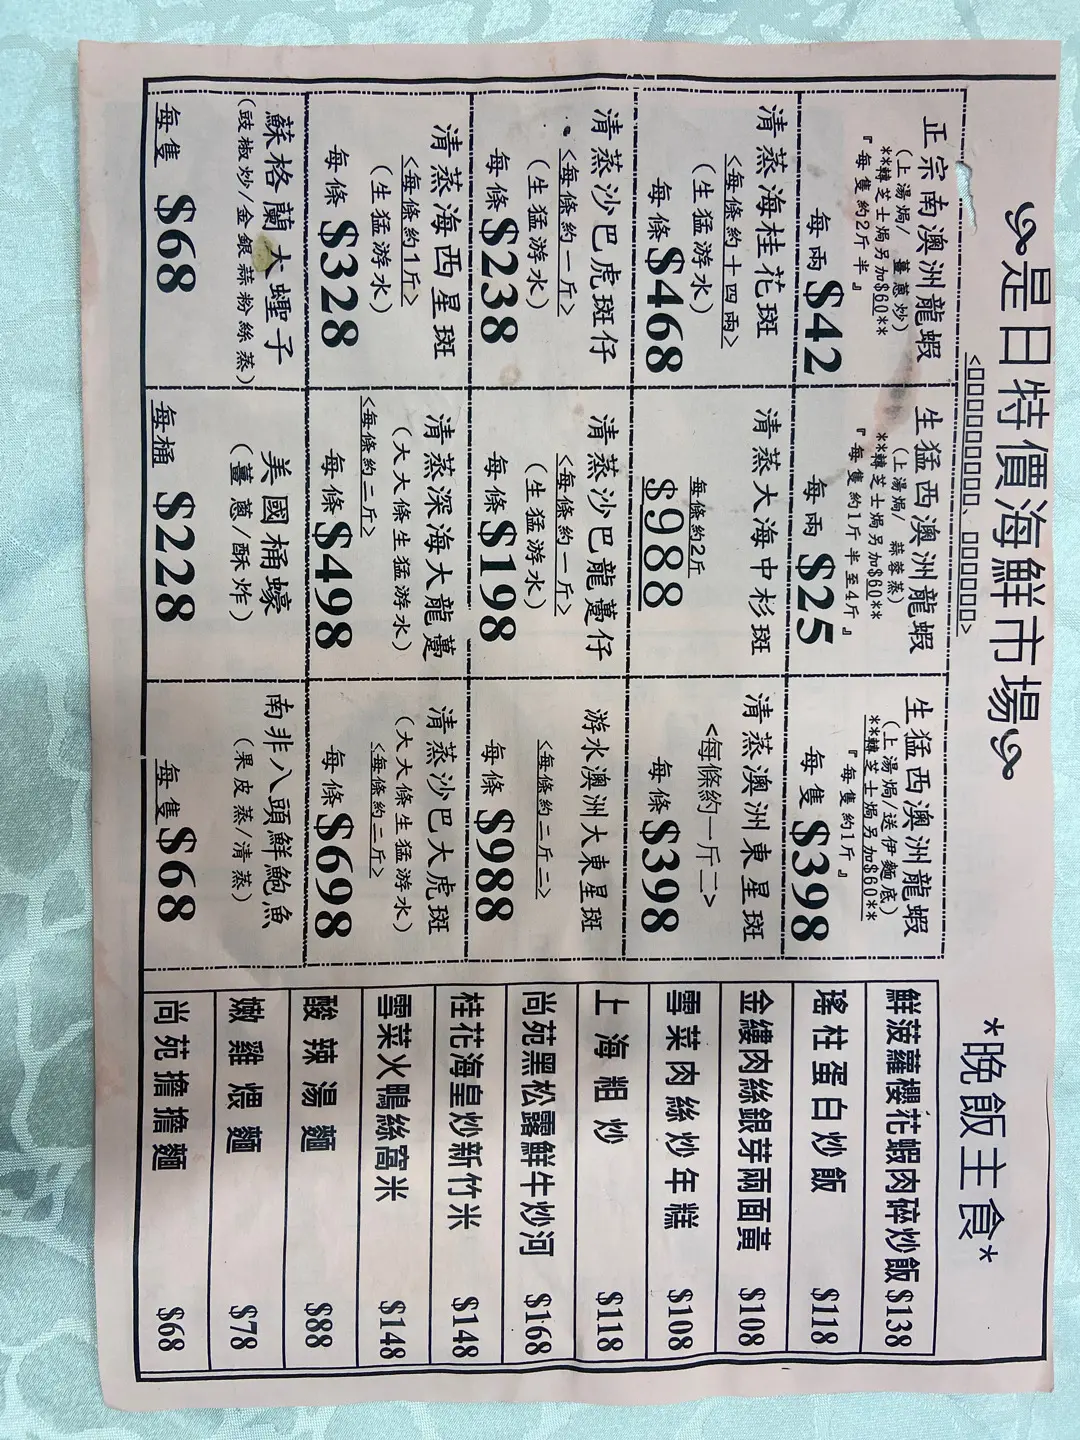 是日特價海鮮市場
<□□□□□□□□□、□□□□□□>
正宗南澳洲龍蝦
(上湯焗/ 薑蔥炒)
**韓芝士焗另加$60**
『每隻約2斤半』
每兩 $42
生猛西澳洲龍蝦
(上湯焗/ 蒜蓉蒸)
**韓芝士焗另加$60**
『每隻約1斤半至4斤』
每兩 $25
生猛西澳洲龍蝦
(上湯焗/送伊麵底)
**韓芝士焗另加$60**
『每隻約1斤』
每隻 $398
清蒸海桂花斑
<每條約十四兩>
(生猛游水)
每條 $468
清蒸大海中杉斑
每條約2斤
$988
清蒸澳洲東星斑
<每條約一斤二>
每條 $398
清蒸沙巴虎斑仔
<每條約一斤>
(生猛游水)
每條 $238
清蒸沙巴龍躉仔
<每條約一斤>
(生猛游水)
每條 $198
游水澳洲大東星斑
<每條約二斤二>
每條 $988
清蒸海西星斑
<每條約1斤>
(生猛游水)
每條 $328
清蒸深海大龍躉
(大大條生猛游水)
<每條約二斤>
每條 $498
清蒸沙巴大虎斑
(大大條生猛游水)
<每條約二斤>
每條 $698
蘇格蘭大蟶子
(豉椒炒/金銀蒜粉絲蒸)
每隻 $68
美國桶蠔
(薑蔥/酥炸)
每桶 $228
南非八頭鮮鮑魚
(果皮蒸/清蒸)
每隻 $68
*晚飯主食*
鮮菠蘿櫻花蝦肉碎炒飯 $138
瑤柱蛋白炒飯 $118
金縷肉絲銀芽兩面黃 $108
雪菜肉絲炒年糕 $108
上海粗炒 $118
尚苑黑松露鮮牛炒河 $168
桂花海皇炒新竹米 $148
雪菜火鴨絲窩米 $148
酸辣湯麵 $88
嫩雞煨麵 $78
尚苑擔擔麵 $68